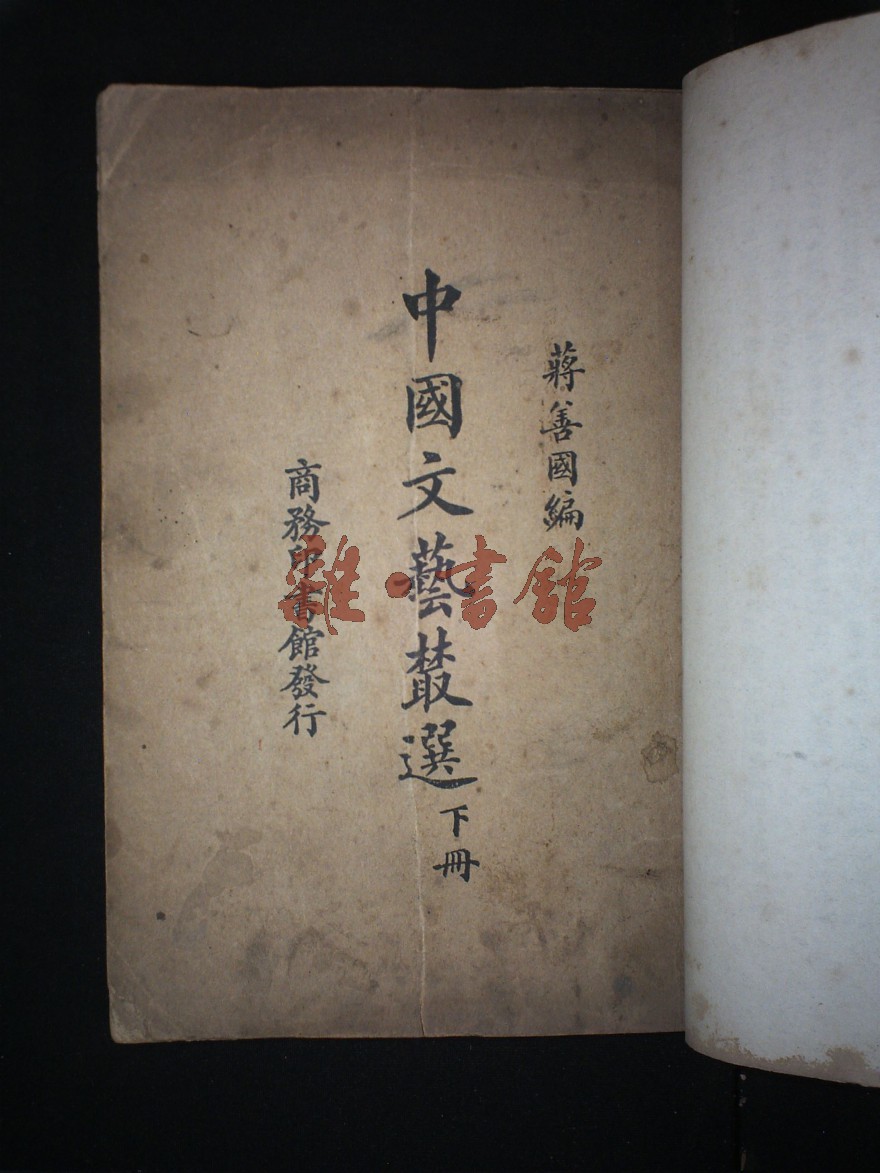 蔣善國編
中國文藝叢選 下冊
商務印書館發行
雜·書館